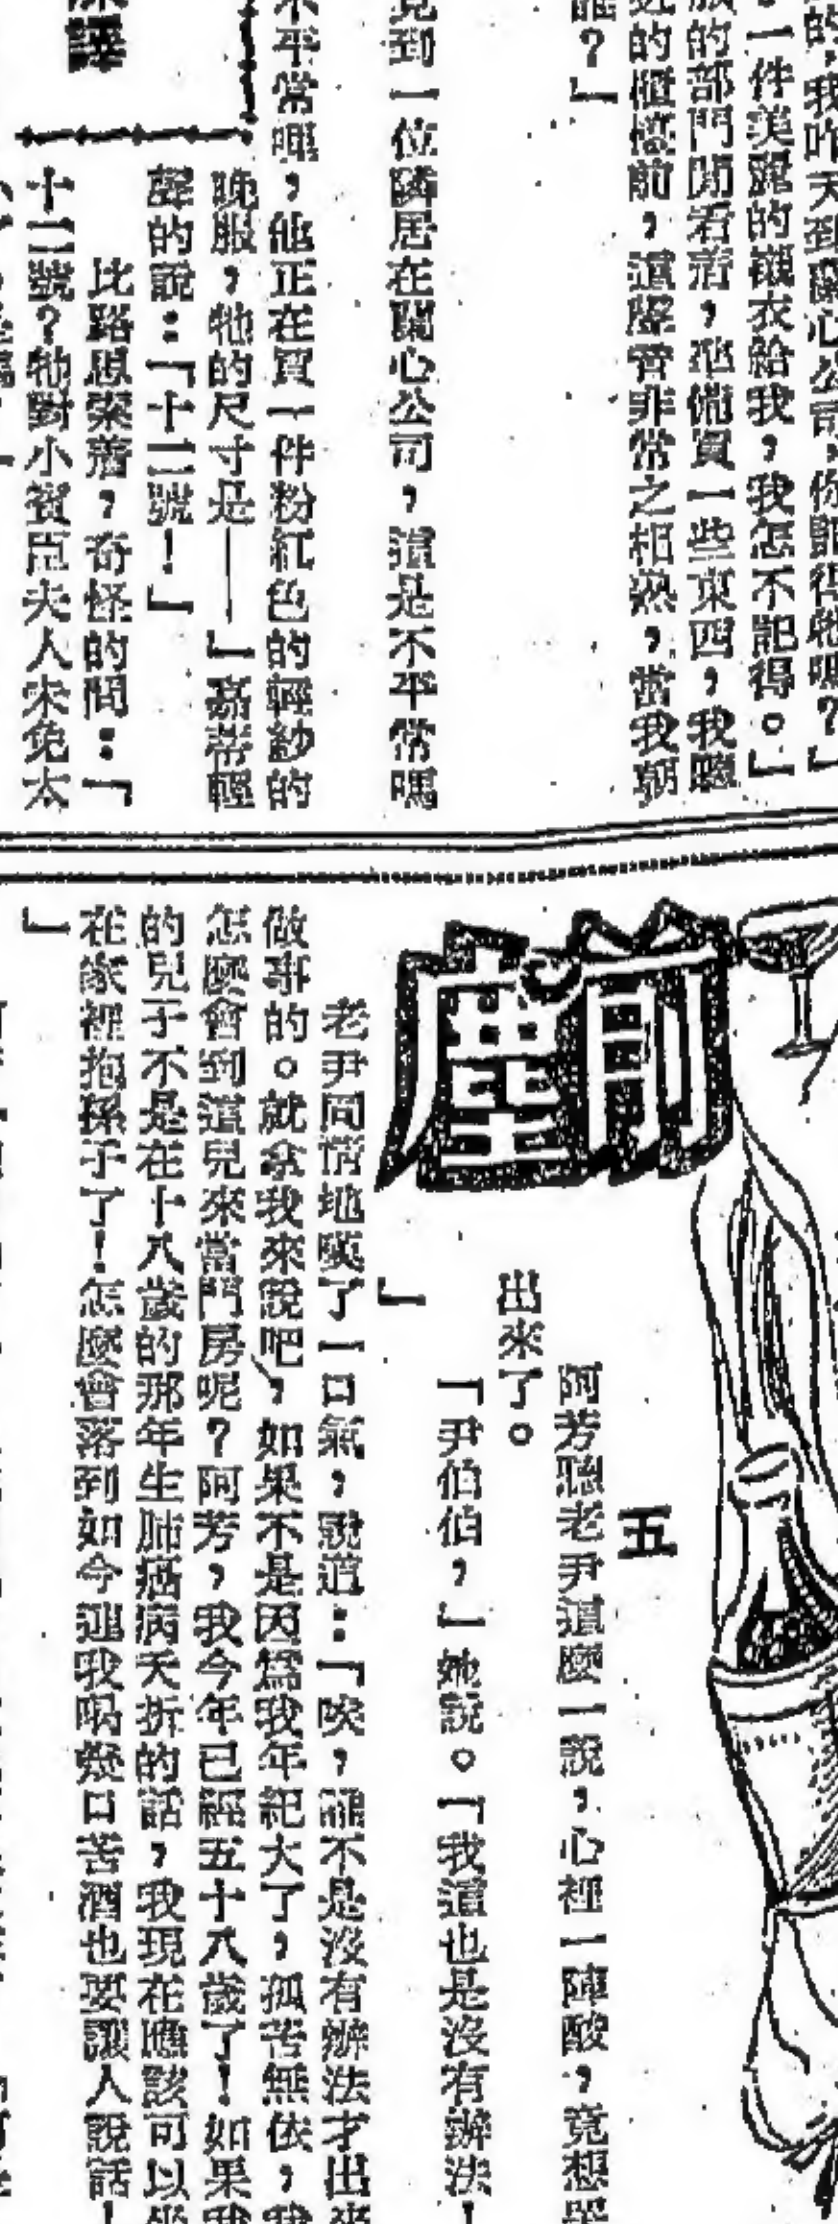 的，我昨天到蘭心公司，你記得嗎？」
一件美麗的襯衣給我，我怎不記得。」
的部門閒看着，準備買一些東西，我聽
的櫃檯前，這聲音非常之相熟，當我朝
誰？」
到一位隣居在蘭心公司，這是不平常嗎
不平常哩，他正在買一件粉紅色的輕紗的
晚服，牠的尺寸是——」嘉蒂輕
聲的說：「十二號！」
比路思索着，奇怪的問：「
十二號？牠對小賓臣夫人未免太
譯
前塵
五
阿芳聽老尹這麼一說，心裡一陣酸，竟想哭
出來了。
「尹伯伯，」她說。「我這也是沒有辦法！
」
老尹同情地嘆了一口氣，說道：「唉，誰不是沒有辦法才出來
做事的。就拿我來說吧，如果不是因爲我年紀大了，孤苦無依，我
怎麼會到這兒來當門房呢？阿芳，我今年已經五十八歲了！如果我
的兒子不是在十八歲的那年生肺癆病夭折的話，我現在應該可以坐
在家裡抱孫子了！怎麼會落到如今連我喝幾口苦酒也要讓人說話！
」